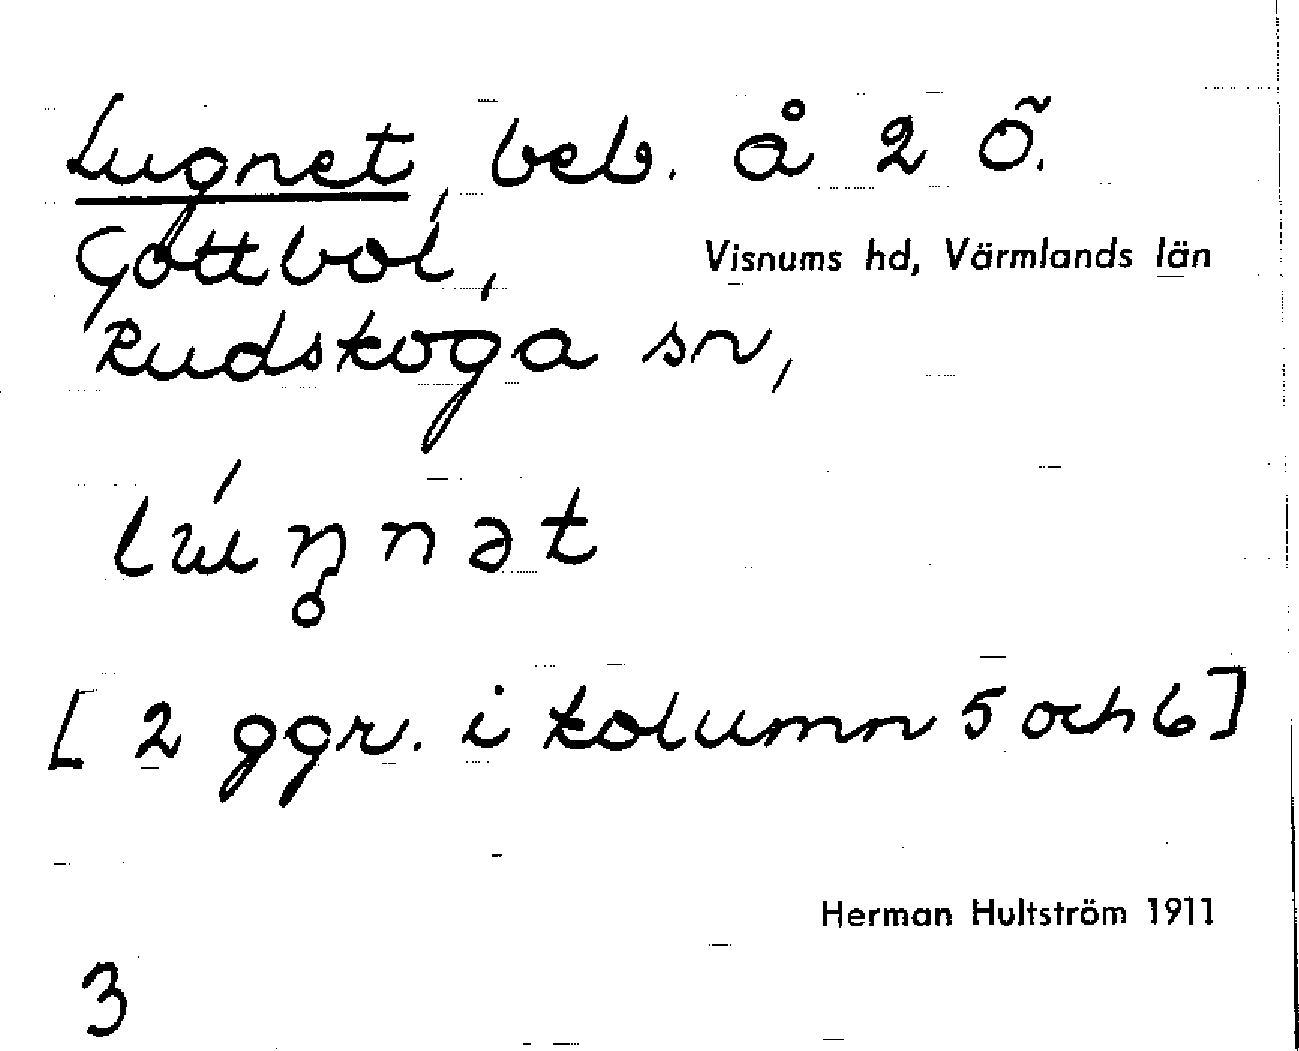 Lugnet, beb. å 2 Ö.
Gottbol,
Visnums hd, Värmlands län
Rudskoga sn,
[2 ggr. i kolumn 5 och 6]
Herman Hultström 1911
3